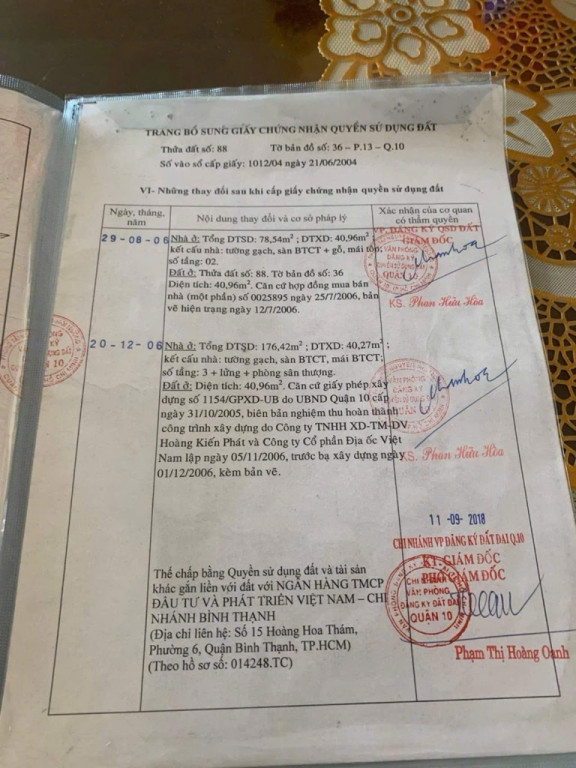 TRANG BỔ SUNG GIẤY CHỨNG NHẬN QUYỀN SỬ DỤNG ĐẤT
Thửa đất số: 88 Tờ bản đồ số: 36 – P.13 – Q.10
Số vào sổ cấp giấy: 1012/04 ngày 21/06/2004
VI- Những thay đổi sau khi cấp giấy chứng nhận quyền sử dụng đất
Ngày, tháng, năm
Nội dung thay đổi và cơ sở pháp lý
Xác nhận của cơ quan có thẩm quyền
29-08-06
Nhà ở: Tổng DTSD: 78,54m² ; DTXD: 40,96m² ;
kết cấu nhà: tường gạch, sàn BTCT + gỗ, mái tôn;
số tầng: 02.
Đất ở: Thửa đất số: 88. Tờ bản đồ số: 36
Diện tích: 40,96m². Căn cứ hợp đồng mua bán
nhà (một phần) số 0025895 ngày 25/7/2006, bản
vẽ hiện trạng ngày 12/7/2006.
VP. ĐĂNG KÝ QSD ĐẤT
GIÁM ĐỐC
KS. Phan Hữu Hòa
20-12-06
Nhà ở: Tổng DTSD: 176,42m² ; DTXD: 40,27m² ;
kết cấu nhà: tường gạch, sàn BTCT, mái BTCT;
số tầng: 3 + lửng + phòng sân thượng.
Đất ở: Diện tích: 40,96m². Căn cứ giấy phép xây
dựng số 1154/GPXD-UB do UBND Quận 10 cấp
ngày 31/10/2005, biên bản nghiệm thu hoàn thành
công trình xây dựng do Công ty TNHH XD-TM-DV
Hoàng Kiến Phát và Công ty Cổ phần Địa ốc Việt
Nam lập ngày 05/11/2006, trước bạ xây dựng ngày
01/12/2006, kèm bản vẽ.
KS. Phan Hữu Hòa
Thế chấp bằng Quyền sử dụng đất và tài sản
khác gắn liền với đất với NGÂN HÀNG TMCP
ĐẦU TƯ VÀ PHÁT TRIỂN VIỆT NAM – CHI
NHÁNH BÌNH THẠNH
(Địa chỉ liên hệ: Số 15 Hoàng Hoa Thám,
Phường 6, Quận Bình Thạnh, TP.HCM)
(Theo hồ sơ số: 014248.TC)
11-09-2018
CHI NHÁNH VP ĐĂNG KÝ ĐẤT ĐAI Q.10
KT. GIÁM ĐỐC
PHÓ GIÁM ĐỐC
CHI NHÁNH
VĂN PHÒNG
ĐĂNG KÝ ĐẤT ĐAI
QUẬN 10
Phạm Thị Hoàng Oanh